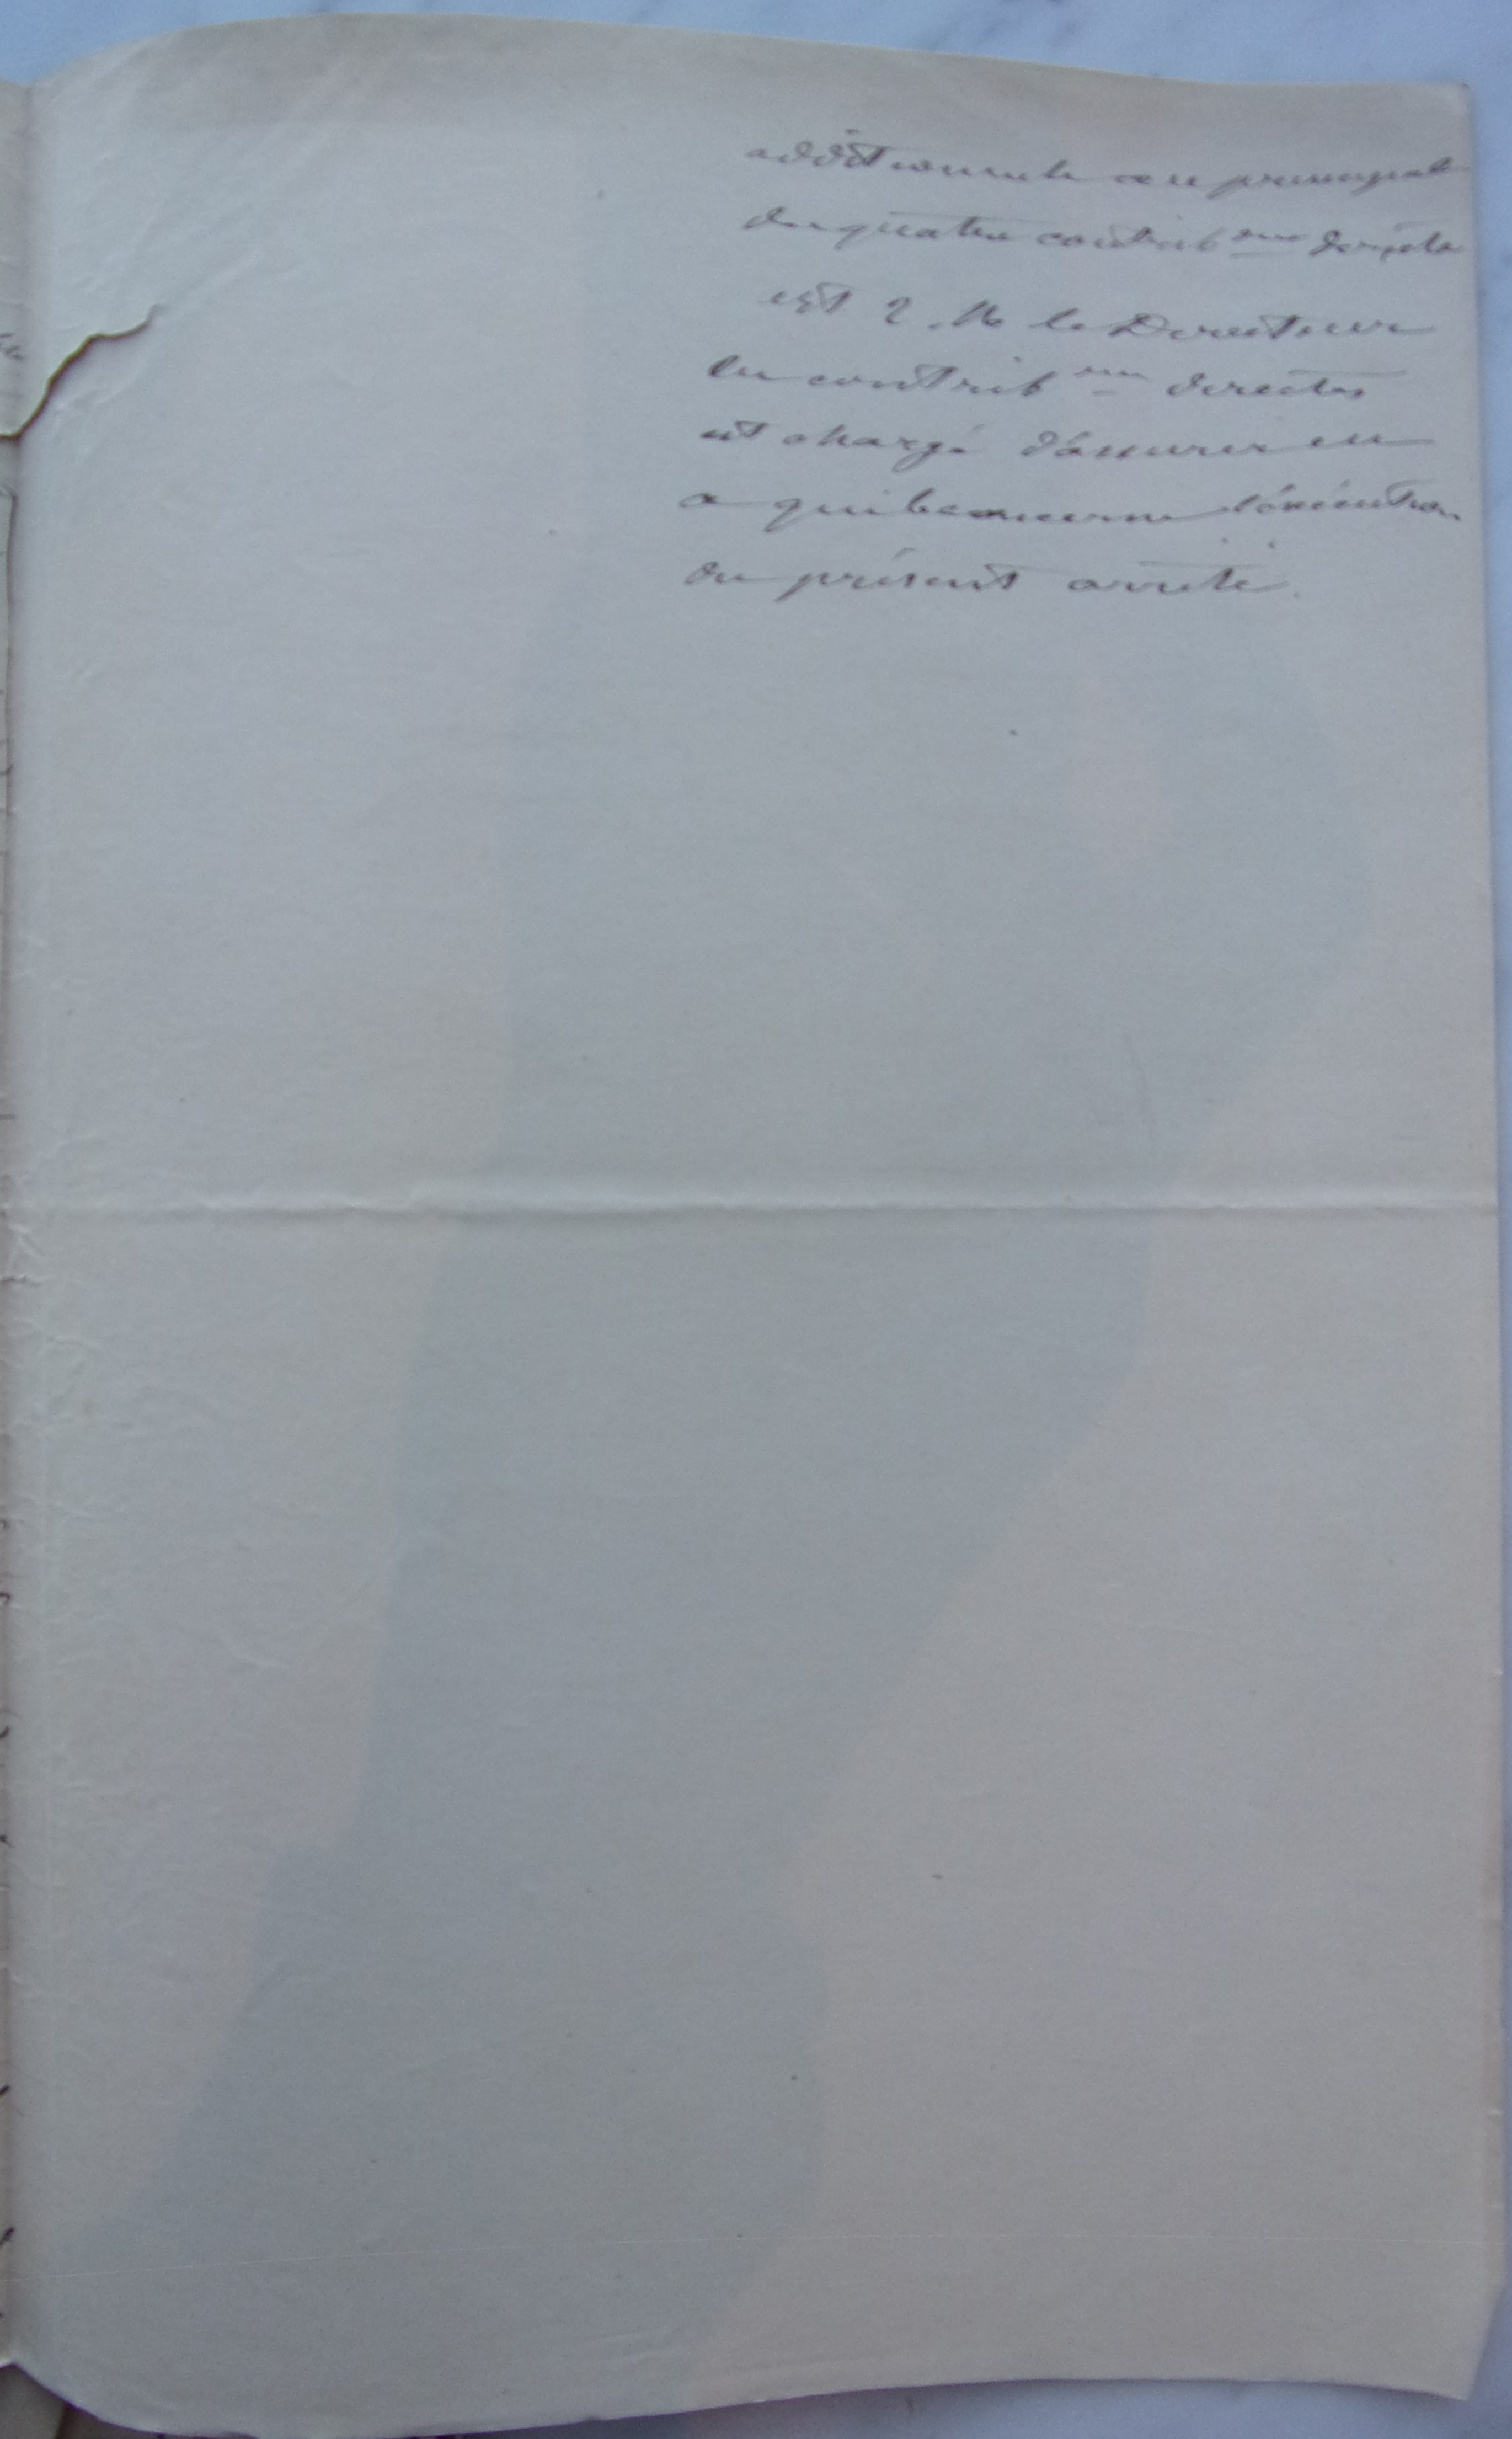 additionnels au principal
des quatre contrib ons directes
art 2. M le Directeur
des contrib ons directes
est chargé d'assurer en
ce qui le concerne l'exécution
du présent arrêté.